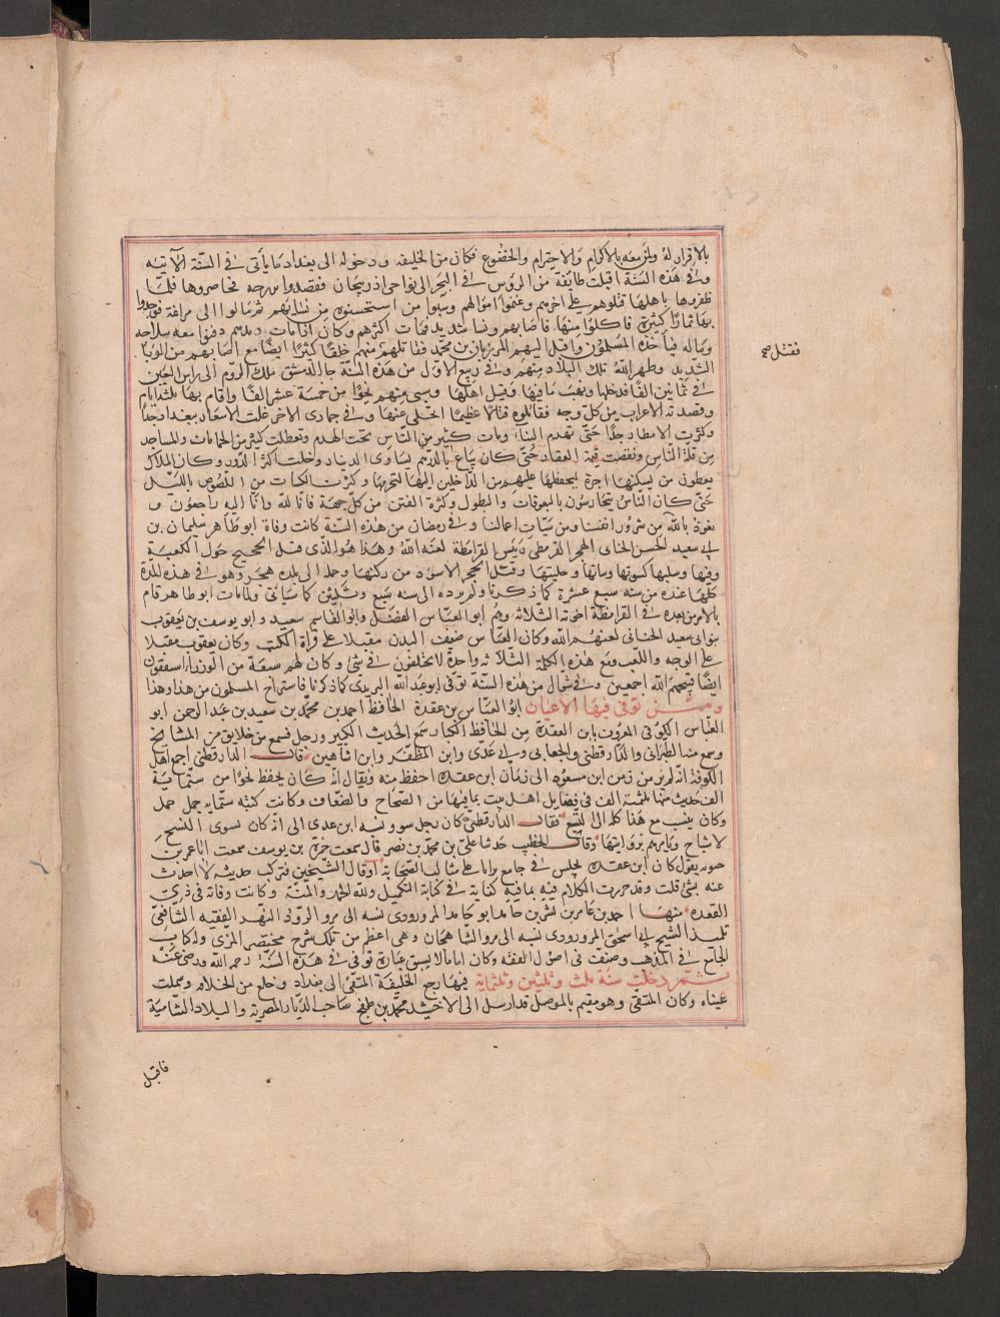 بالاقرار له ولزمعه بالاكرام والاحترام والخضوع فكان من الخليفه ودخوله الى بغداد ما يأتى فى السنة الآتيه
وفى هذه السنة اقبلت طايفة من الروس فى البحر الى نواحى اذربيجان فقصدوا بردعه فحاصروها فلما
ظفروها باهلها قتلوهم على اخرهم وغنموا اموالهم وسبوا من استحسنوه من نسائهم ثم مالوا الى مراغة فوجدوا
بها ثمارا كثيرة فاكلوا منها فاصابهم وبا شديد فمات اكثرهم وكان اذا مات احدهم دفنوا معه سلاحه
وماله فيأخذه المسلمون واقبل اليهم المرزبان بن محمد فقاتلهم منهم خلقا كثيرا ايضا مع اصابهم من الوبا
فقتل صح
الشديد وطهر الله تلك البلاد منهم وفى ربيع الاول من هذه السنة جا الدمستق ملك الروم الى راس العين
فى ثمانين الفا فدخلها ونهب ما فيها وقتل اهلها وسبى منهم نحوا من خمسة عشر الفا واقام بها ثلثة ايام
وقصدته الاعراب من كل وجه فقاتلوه قتالا عظيما انجلى عنها وفى جمادى الاخر غلت الاسعار ببغداد جدا
وكثرت الامطار جدا حتى تهدم البناء ومات كثير من الناس تحت الهدم وتعطلت كثير من الحمامات والمساجد
من قلة الناس ونقصت قيمة العقار حتى كان يباع بالدرهم يساوى الدينار وخلت اكثر الدور وكان الملاك
يعطون من يسكنها اجرة ليحفظها عليهم من الداخلين اليها لتخريبها وكثرت الكبسات من اللصوص بالليل
حتى كان الناس يتحارسون بالبوقات والطبول وكثرة الفتن من كل جهة فانا لله وانا اليه راجعون و
نعوذ بالله من شرور انفسنا ومن سيآت اعمالنا وفى رمضان من هذه السنة كانت وفاة ابو طاهر سليمان بن
ابى سعيد الحسن الجنابى الهجرى القرمطى رئيس القرامطة لعنه الله وهذا هو الذى قتل الحجيج حول الكعبة
وفيها وسلبها كسوتها وبابها وحليتها وقتلع الحجر الاسود من ركنها وحمله الى بلده هجر وهو فى هذه المدة
كلها عنده من سنه سبع عشرة كما ذكرنا ولم يرده الى سنه سبع وثلثين كما سياتى ولما مات ابو طاهر قام
بالامر من بعده فى القرامطة اخوته الثلاثه وهم ابو العباس الفضل وابو القاسم سعيد وابو يوسف بن يعقوب
بنو ابى سعيد الجنابى لعنهم الله وكان العباس ضعيف البدن مقبلا على قراة الكتب وكان يعقوب مقبلا
على الوجه واللعب ومع هذه الكلمة الثلاثه واحدة لا يختلفون فى شئ وكان لهم سبعة من الوزراء متفقون
ايضا قبحهم الله اجمعين وفى شوال من هذه السنة توفى ابو عبد الله البريدى كما ذكرنا فاستراح المسلمون من هذا وهذا
وممن توفى فيها الاعيان ابو العباس بن عقدة الحافظ احمد بن محمد بن سعيد بن عبد الرحمن ابو
العباس الكوفى المعروف بابن العقدة من الحافظ الكبار سمع الحديث الكبير ورحل فسمع من خلايق من المشايخ
وسمع منه الطبرانى والدارقطنى والجعابى وابى عدى وابن المظفر وابن شاهين قال الدارقطنى اجمع اهل
الكوفة انه لم ير من زمن ابن مسعود الى زمان ابن عقدة احفظ منه ويقال انه كان يحفظ نحوا من ستماية
الف حديث منها ثلثمية الف فى فضايل اهل بيت بما فيها من الصحاح والضعاف وكانت كتبه ستمايه جمل حمل
وكان ينسب مع هذا كله الى التشيع فقال الدارقطنى كان رجل سوء ونسبه ابن عدى الى انه كان يسوى النسخ
لاشياخ ويامرهم بروايتها وقال الخطيب حدثنا على بن محمد بن نصر قال سمعت حمزة بن يوسف سمعت ابا عمر بن
حيويه يقول كان ابن عقدة يجلس فى جامع براثا على مثالب الصحابة او قال الشيخين فتركت حديثه لا احدث
عنه بشئ قلت وقد حررت الكلام فيه بما فيه كفاية فى كتابه التكميل ولله الحمد والمنة وكانت وفاته فى ذى
القعده منها احمد بن عامر بن بشر بن حامد ابو حامد المروروذى نسبه الى مرو الروذ النهر الفقيه الشافعى
تلميذ الشيخ ابى اسحق المروروذى نسبه الى مرو الشاهجان وهى اعظم من تلك شرح مختصر المزنى وله كتاب
الجامع فى المذهب وصنف فى اصول الفقه وكان اماما لا يشق غباره توفى فى هذه السنة رحمه الله ورضى عنه
ثم دخلت سنة ثلث وثلثين وثلثماية فيها رجع الخليفة المتقى الى بغداد وخلع من الخلافه وسملت
عيناه وكان المتقى وهو مقيم بالموصل قد ارسل الى الاخشيد محمد بن طغج صاحب الديار المصرية والبلاد الشامية
فاقبل